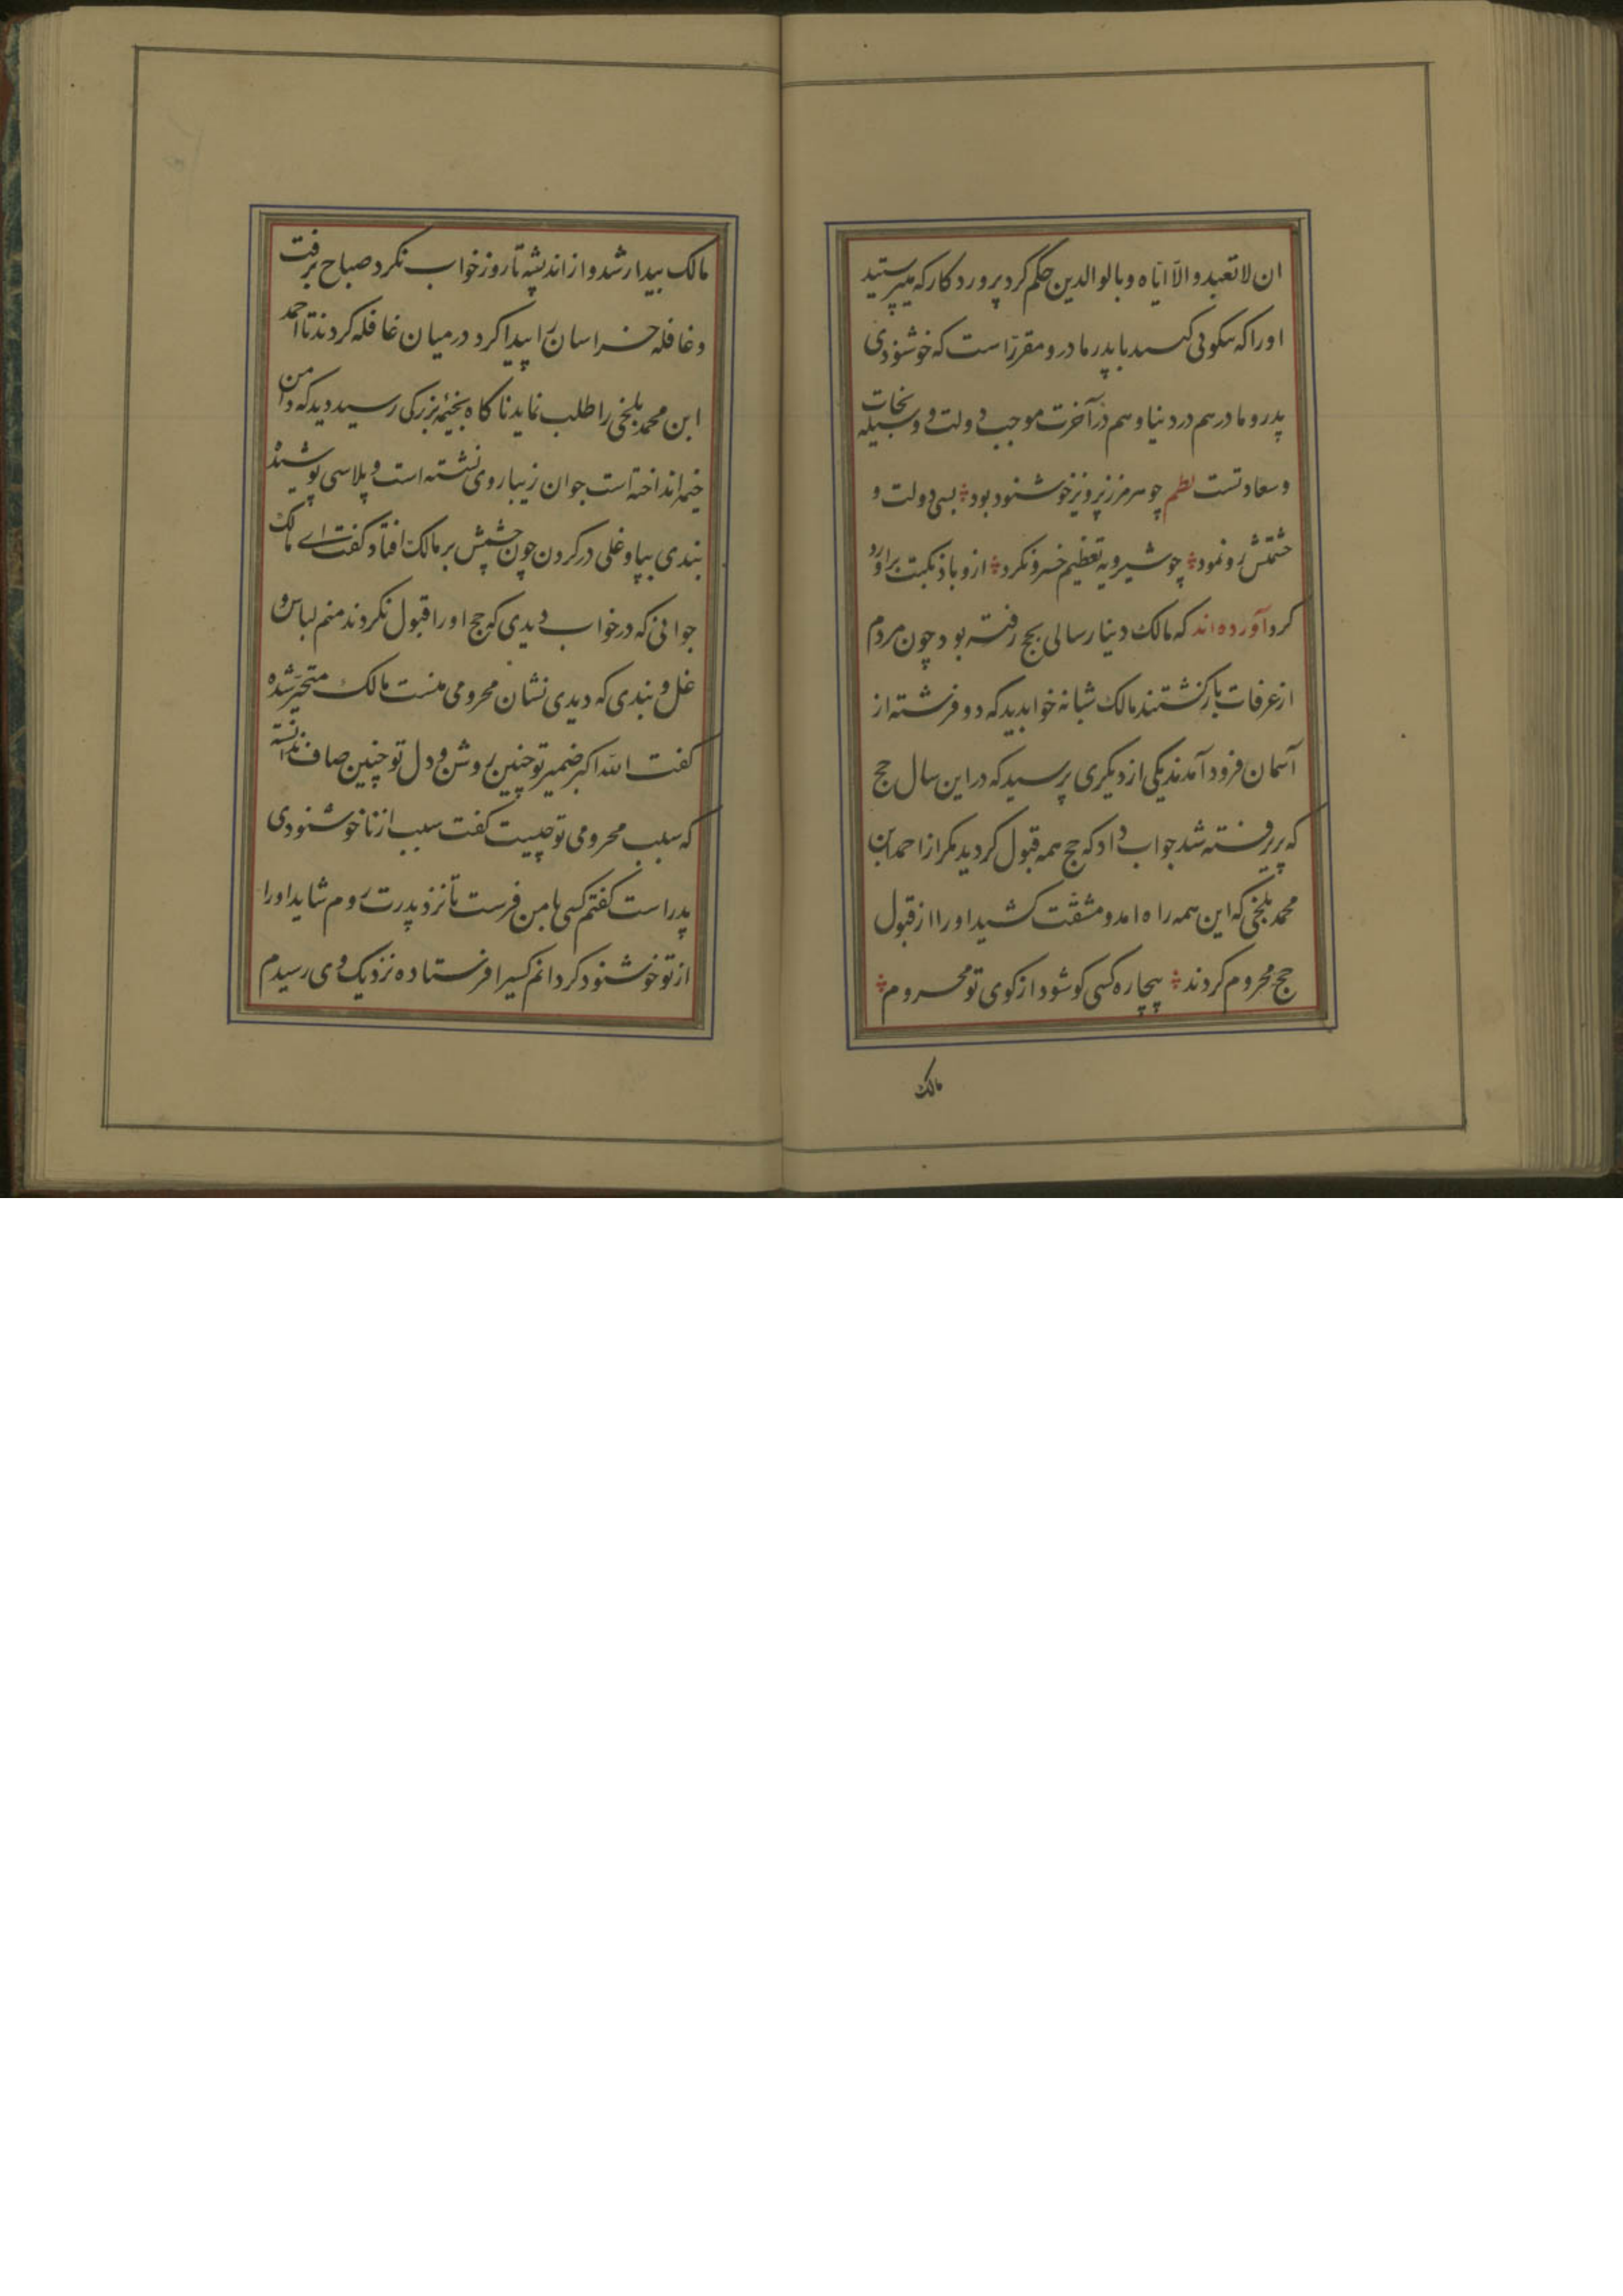 ان لا تعبدوا الّا ایّاه و بالوالدین حکم کرد پروردکار که میپرستید
اورا که نیکوئی کنید با پدر مادر و مقرّر است که خوشنودی
پدر و مادر هم در دنیا و هم در آخرت موجب دولت و وسیله نجات
و سعادتست نظم چو هرمز ز پرویز خوشنود بود بسی دولت و
حشمتش رو نمود چو شیرویه تعظیم خسرو نکرد ازو باد نکبت برآورد
کرد آورده‌اند که مالک دینار سالی بحج رفته بود چون مردم
از عرفات بازکشتند مالک شبانه خوابدید که دو فرشته از
آسمان فرود آمدند یکی از دیکری پرسید که در این سال حج
که پذیرفته شد جواب داد که حج همه قبول کردید مکر از احمد ابن
محمد بلخی که این همه راه امد و مشقّت کشید اورا از قبول
حج محروم کردند بیچاره کسی کو شود از کوی تو محروم
مالک
مالک بیدار شد و از اندیشه تا روز خواب نکرد صباح برفت
و غافله خراسان را پیدا کرد درمیان غافله کردند تا احمد
ابن محمد بلخی را طلب نماید ناکاه بخیمهٔ بزرکی رسید دید که دامن
خیمه انداخته است جوان زیبا روی نشسته است و پلاسی پوشیده
بندی بپا و غلی در کردن چون چشمش بر مالک افتاد کفت اے مالک
جوانی که در خواب دیدی که حج اورا قبول نکردند منم لباس و
غل و بندی که دیدی نشان محرومی منست مالک متحیّر شده
کفت الله اکبر ضمیر تو چنین روشن و دل تو چنین صاف ندانسته
که سبب محرومی تو چیست کفت سبب از ناخوشنودی
پدر است کفتم کسی با من فرست تا نزد پدرت روم شاید اورا
از تو خوشنود کردانم کسیرا فرستاده نزدیک وی رسیدم